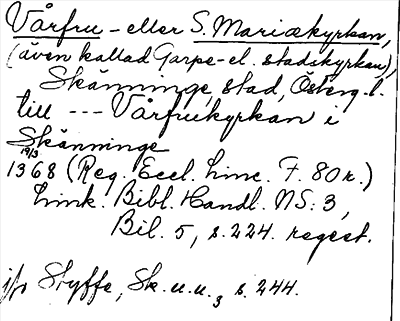 Vårfru- eller S. Mariækyrkan,
(även kallad Garpe- el. stadskyrkan),
Skänninge, stad, Österg.l.
till --- Vårfrukyrkan i
Skänninge
19/3
1368 (Reg. Eccl. Linc. F. 80 r.)
Link. Bibl. Handl. NS: 3,
Bil. 5, s. 224. regest.
Styffe, Sk. u. u.3 s. 244.